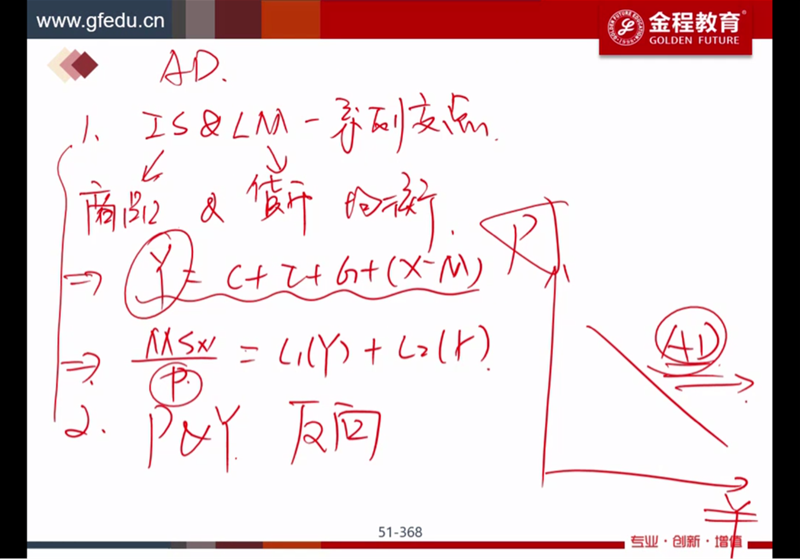 www.gfedu.cn
金程教育®
GOLDEN FUTURE
AD.
1. IS & LM 一系列交点.
商品 & 货币 均衡.
⇒ Y = C + I + G + (X-M)
⇒ MSN/P = L₁(Y) + L₂(r).
2. P & Y 反向
P
AD
Y
51-368
专业·创新·增值